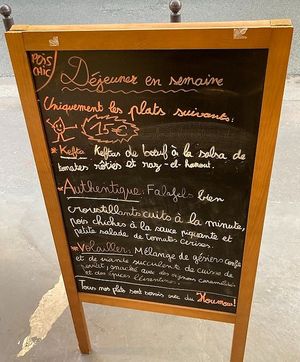 POIS
CHIC
Déjeuner en semaine
Uniquement les plats suivants:
15€
* Kefta: Keftas de bœuf à la salsa de
tomates rôties et raz-el-hanout.
*Authentique: Falafels bien
croustillants cuits à la minute,
pois chiches à la sauce piquante et
petite salade de tomates cerises.
*Volailler: Mélange de gésiers confits
et de viande succulente de cuisse de
poulet, snackés avec des oignons caramélisés
et des épices
Tous nos plats sont servis avec du Houmous!